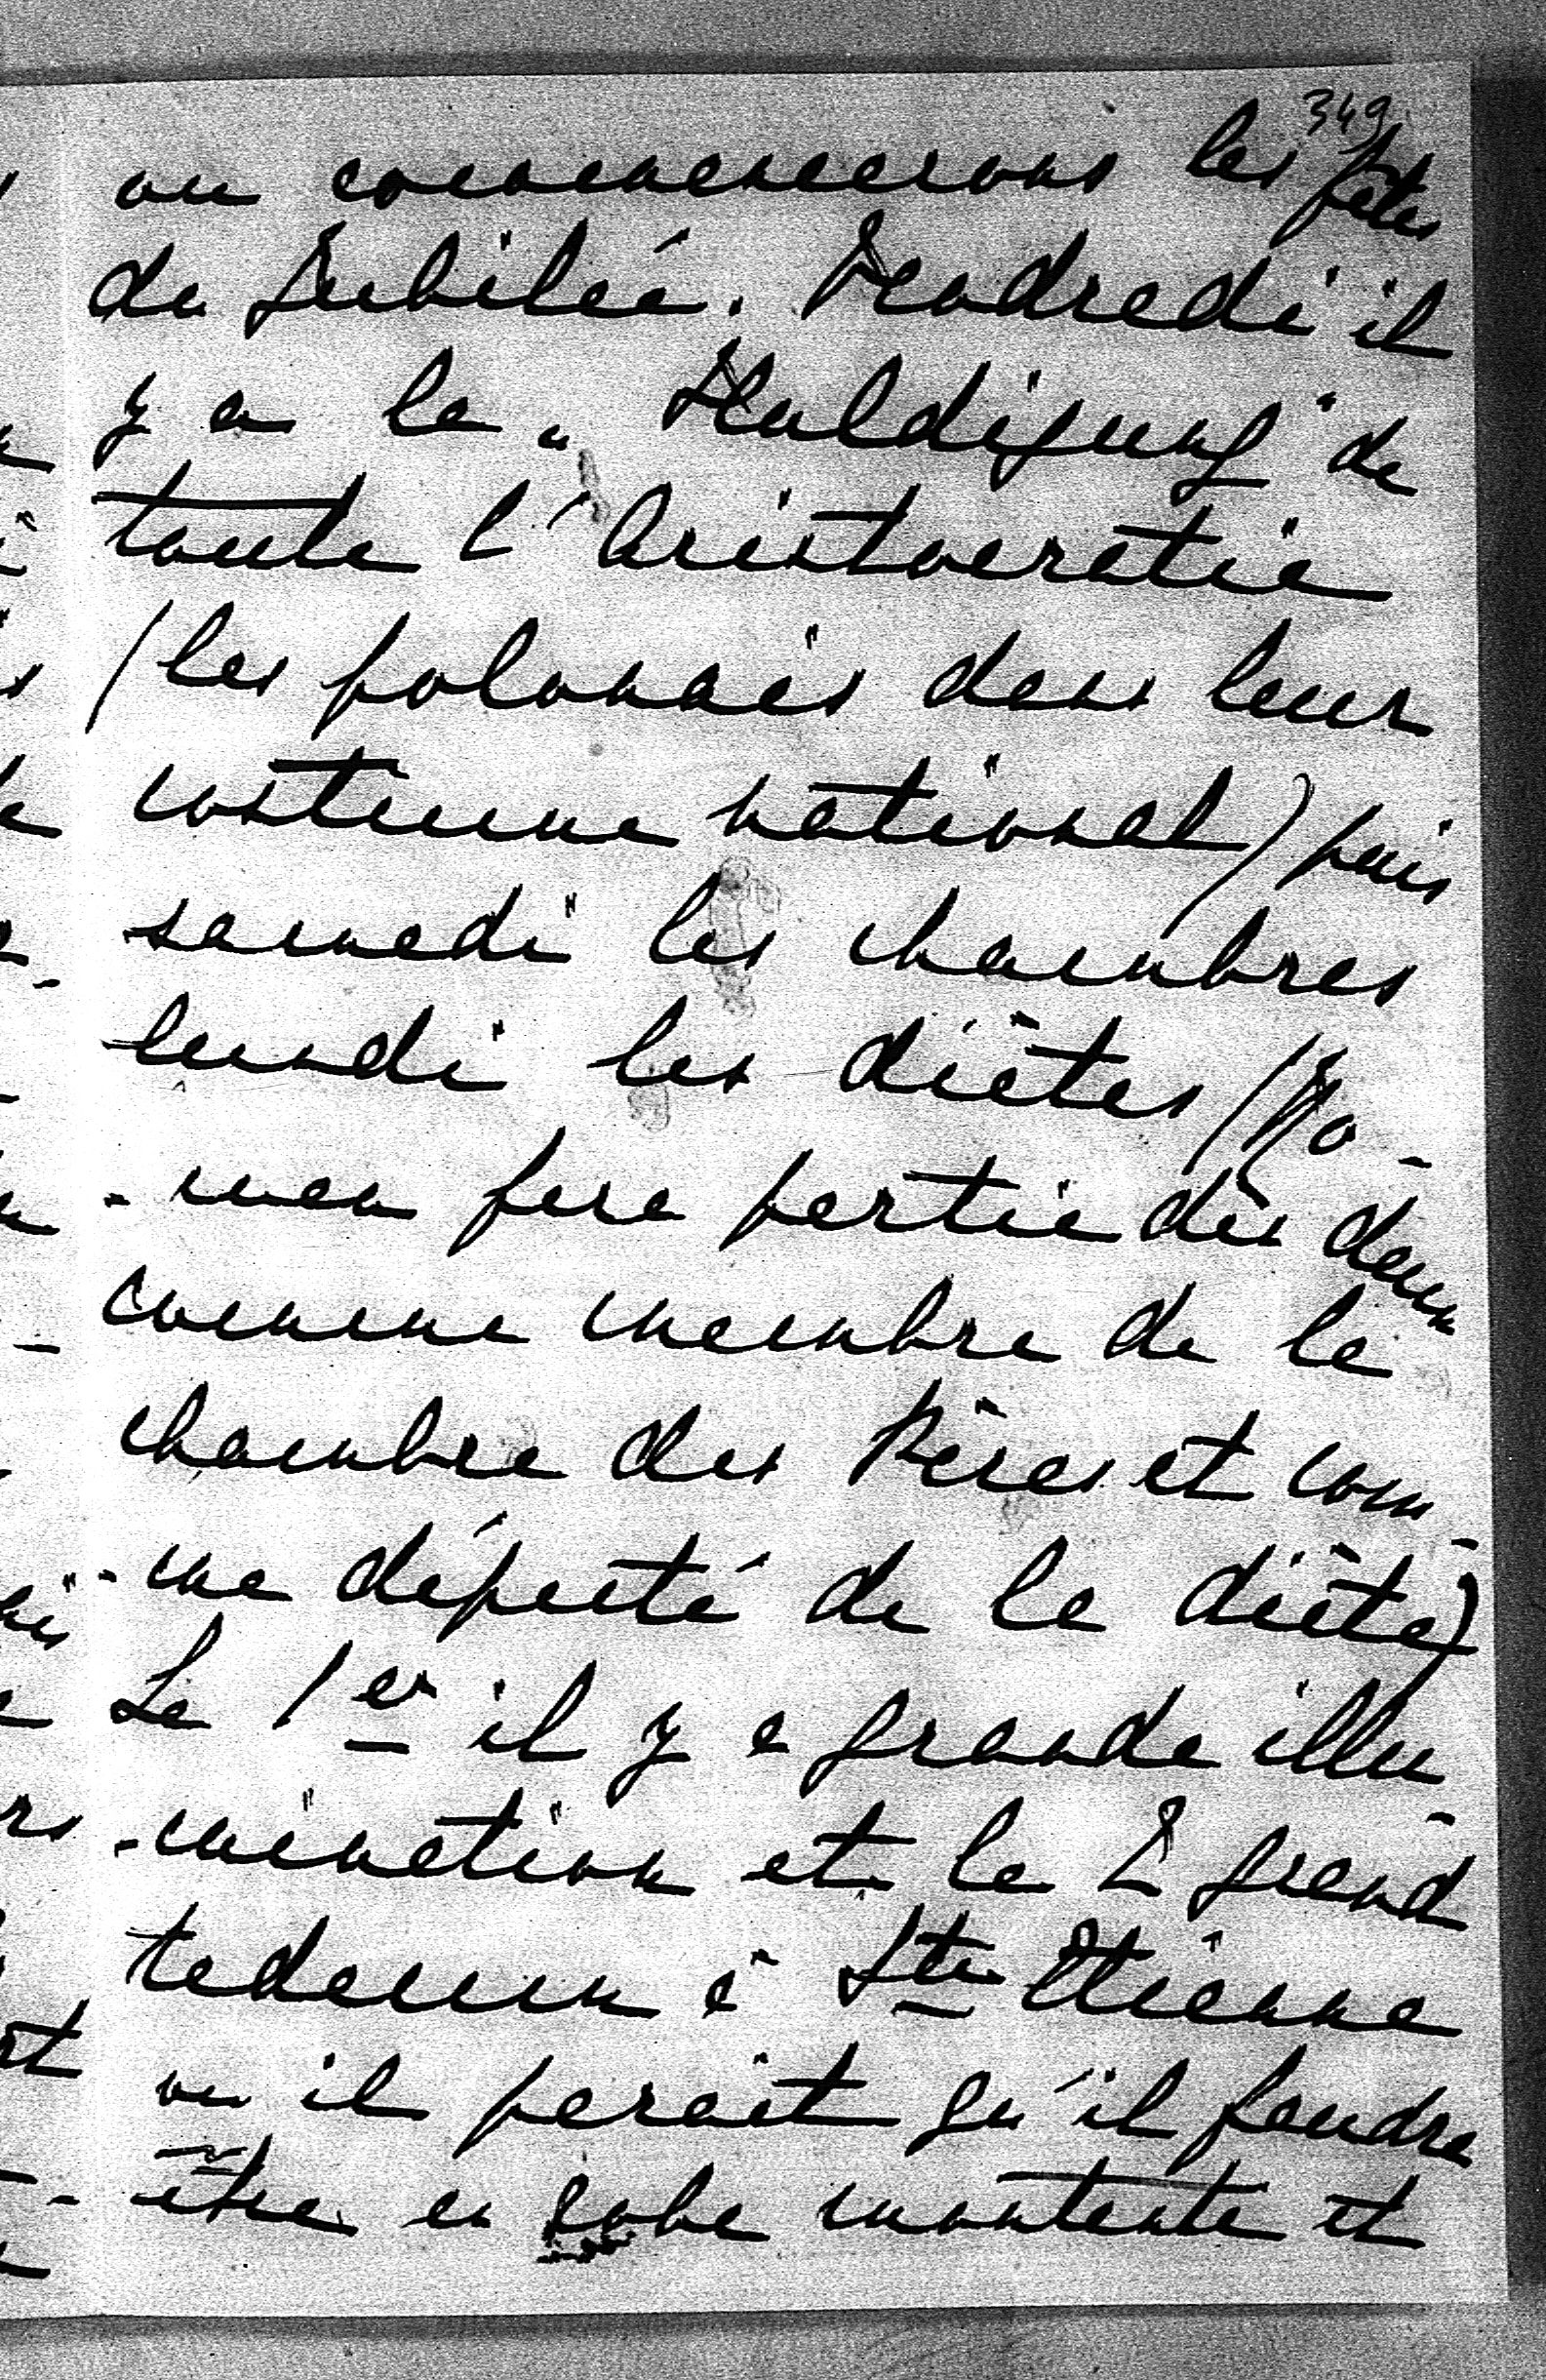 349
ou commencerons les fêtes
du Jubileé. Vendredi il
y a la „Huldigung" de
toute l'Aristocratie
(les polonais dans leur
costume national) puis
samedi les chambres
lundi les diètes (Ro-
-man fera partie des deux
comme membre de la
chambre des Pères et com-
-me député de la diète)
Le 1er il y a grande illu-
-mination et le 2 grand
tedeum à Ste Etienne
ou il parait qu'il faudra
être en robe montante et